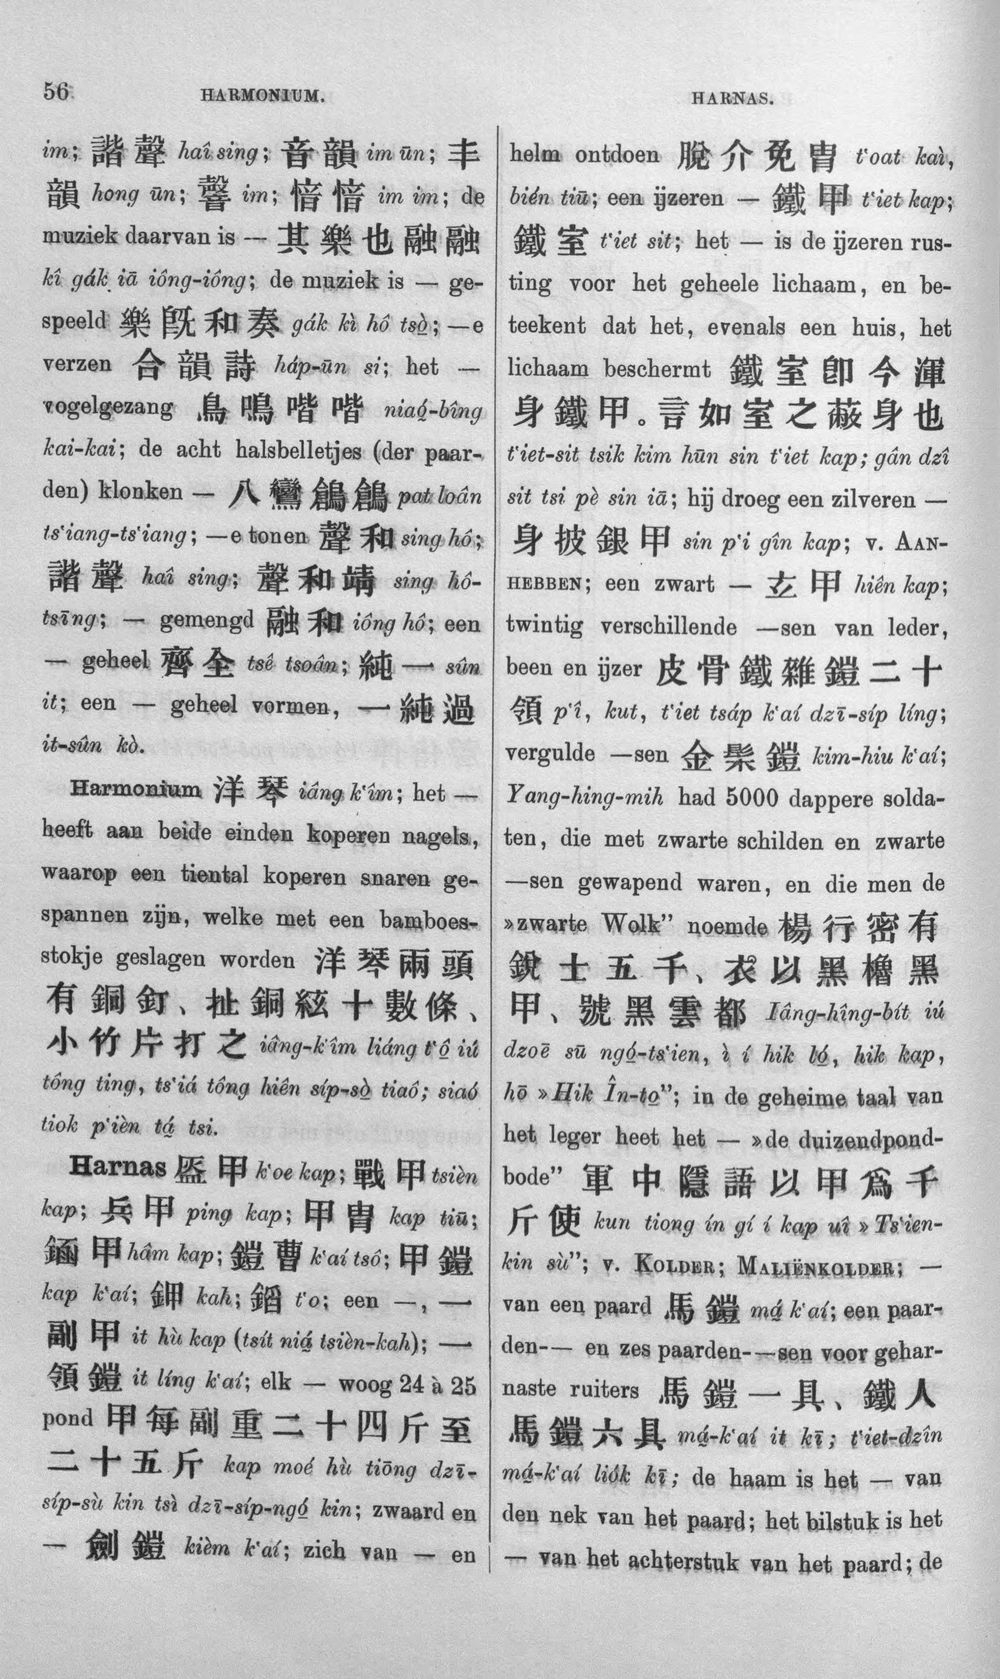 56
HARMONIUM.
HARNAS.
im; 諧聲 haî sing; 音韻 im ūn; 丰
韻 hong ūn; 謦 im; 愔愔 im im; de
muziek daarvan is — 其樂也融融
kî gák iā iông-iông; de muziek is — ge-
speeld 樂旣和奏 gák kì hô tsò; —e
verzen 合韻詩 háp-ūn si; het —
vogelgezang 鳥鳴喈喈 niaó-bîng
kai-kai; de acht halsbelletjes (der paar-
den) klonken — 八鸞鶬鶬 pat loân
ts‘iang-ts‘iang; —e tonen 聲和 sing hô;
諧聲 haî sing; 聲和靖 sing hô-
tsīng; — gemengd 融和 iông hô; een
— geheel 齊全 tsê tsoân; 純一 sûn
it; een — geheel vormen, 一純過
it-sûn kò.
Harmonium 洋琴 iâng k‘îm; het —
heeft aan beide einden koperen nagels,
waarop een tiental koperen snaren ge-
spannen zijn, welke met een bamboes-
stokje geslagen worden 洋琴兩頭
有銅釘、扯銅絃十數條、
小竹片打之 iâng-k‘îm liáng t‘ô iú
tông ting, ts‘iá tông hiên síp-sò tiaô; siaó
tiok p‘ièn tá tsi.
Harnas 盔甲 k‘oe kap; 戰甲 tsièn
kap; 兵甲 ping kap; 甲冑 kap tiū;
鋡甲 hâm kap; 鎧曹 k‘aí tsô; 甲鎧
kap k‘aí; 鉀 kah; 鍂 t‘o; een —, 一
副甲 it hù kap (tsít niá tsièn-kah); 一
領鎧 it líng k‘aí; elk — woog 24 à 25
pond 甲每副重二十四斤至
二十五斤 kap moé hù tiōng dzī-
síp-sù kin tsì dzī-síp-ngó kin; zwaard en
— 劍鎧 kièm k‘aí; zich van — en
helm ontdoen 脫介免冑 t‘oat kaì,
bién tiū; een ijzeren — 鐵甲 t‘iet kap;
鐵室 t‘iet sit; het — is de ijzeren rus-
ting voor het geheele lichaam, en be-
teekent dat het, evenals een huis, het
lichaam beschermt 鐵室卽今渾
身鐵甲。言如室之蔽身也
t‘iet-sit tsik kim hūn sin t‘iet kap; gân dzî
sit tsi pè sin iā; hij droeg een zilveren —
身披銀甲 sin p‘i gîn kap; v. AAN-
HEBBEN; een zwart — 玄甲 hiên kap;
twintig verschillende —sen van leder,
been en ijzer 皮骨鐵雜鎧二十
領 p‘î, kut, t‘iet tsáp k‘aí dzī-síp líng;
vergulde —sen 金髹鎧 kim-hiu k‘aí;
Yang-hing-mih had 5000 dappere solda-
ten, die met zwarte schilden en zwarte
—sen gewapend waren, en die men de
»zwarte Wolk” noemde 楊行密有
銳士五千、衣以黑櫓黑
甲、號黑雲都 Iâng-hîng-bít iú
dzoē sū ngó-ts‘ien, ì í hik ló, hik kap,
hō »Hik În-to”; in de geheime taal van
het leger heet het — »de duizendpond-
bode” 軍中隱語以甲爲千
斤使 kun tiong ín gí í kap uî »Ts‘ien-
kin sù”; v. KOLDER; MALIËNKOLDER; —
van een paard 馬鎧 má k‘aí; een paar-
den-— en zes paarden-—sen voor gehar-
naste ruiters 馬鎧一具、鐵人
馬鎧六具 má-k‘aí it kī; t‘iet-dzîn
má-k‘aí liók kī; de haam is het — van
den nek van het paard; het bilstuk is het
— van het achterstuk van het paard; de